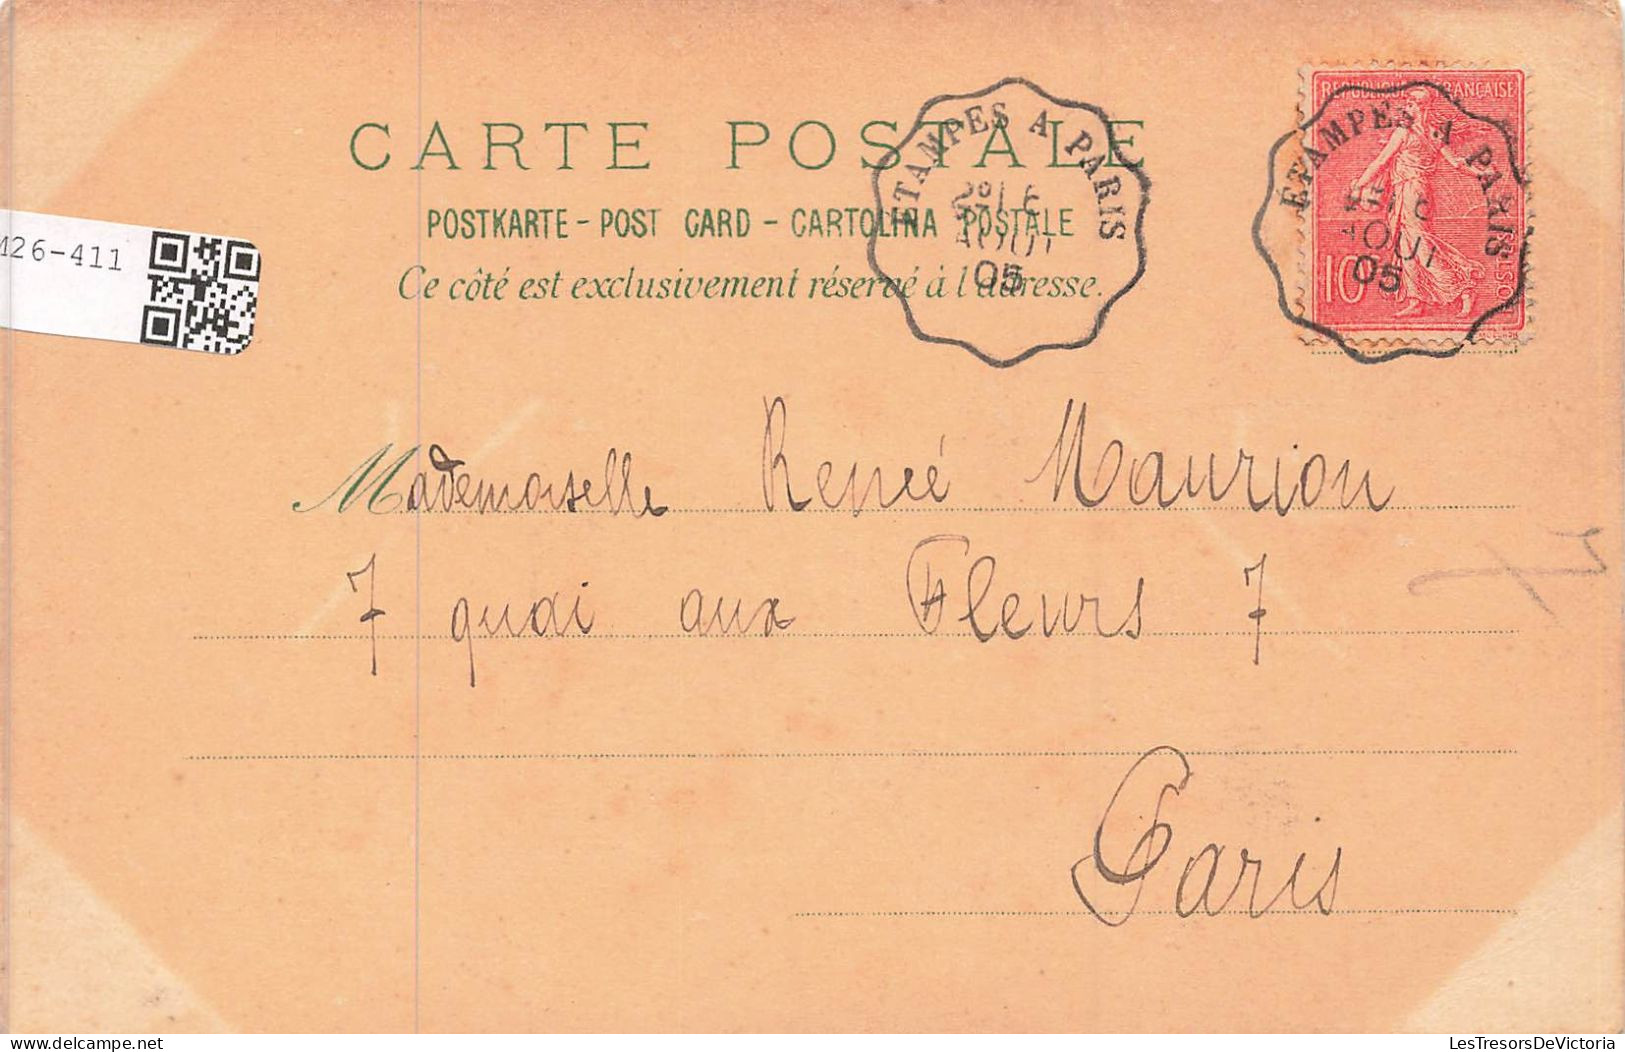 CARTE POSTALE
POSTKARTE - POST CARD - CARTOLINA POSTALE
Ce côté est exclusivement réservé à l'adresse.
ETAMPES A PARIS
AOUT
05
REPUBLIQUE FRANÇAISE
10
ETAMPES A PARIS
AOUT
05
426-411
Mademoiselle Renée Maurion
7 quai aux Fleurs 7
Paris
LesTresorsDeVictoria